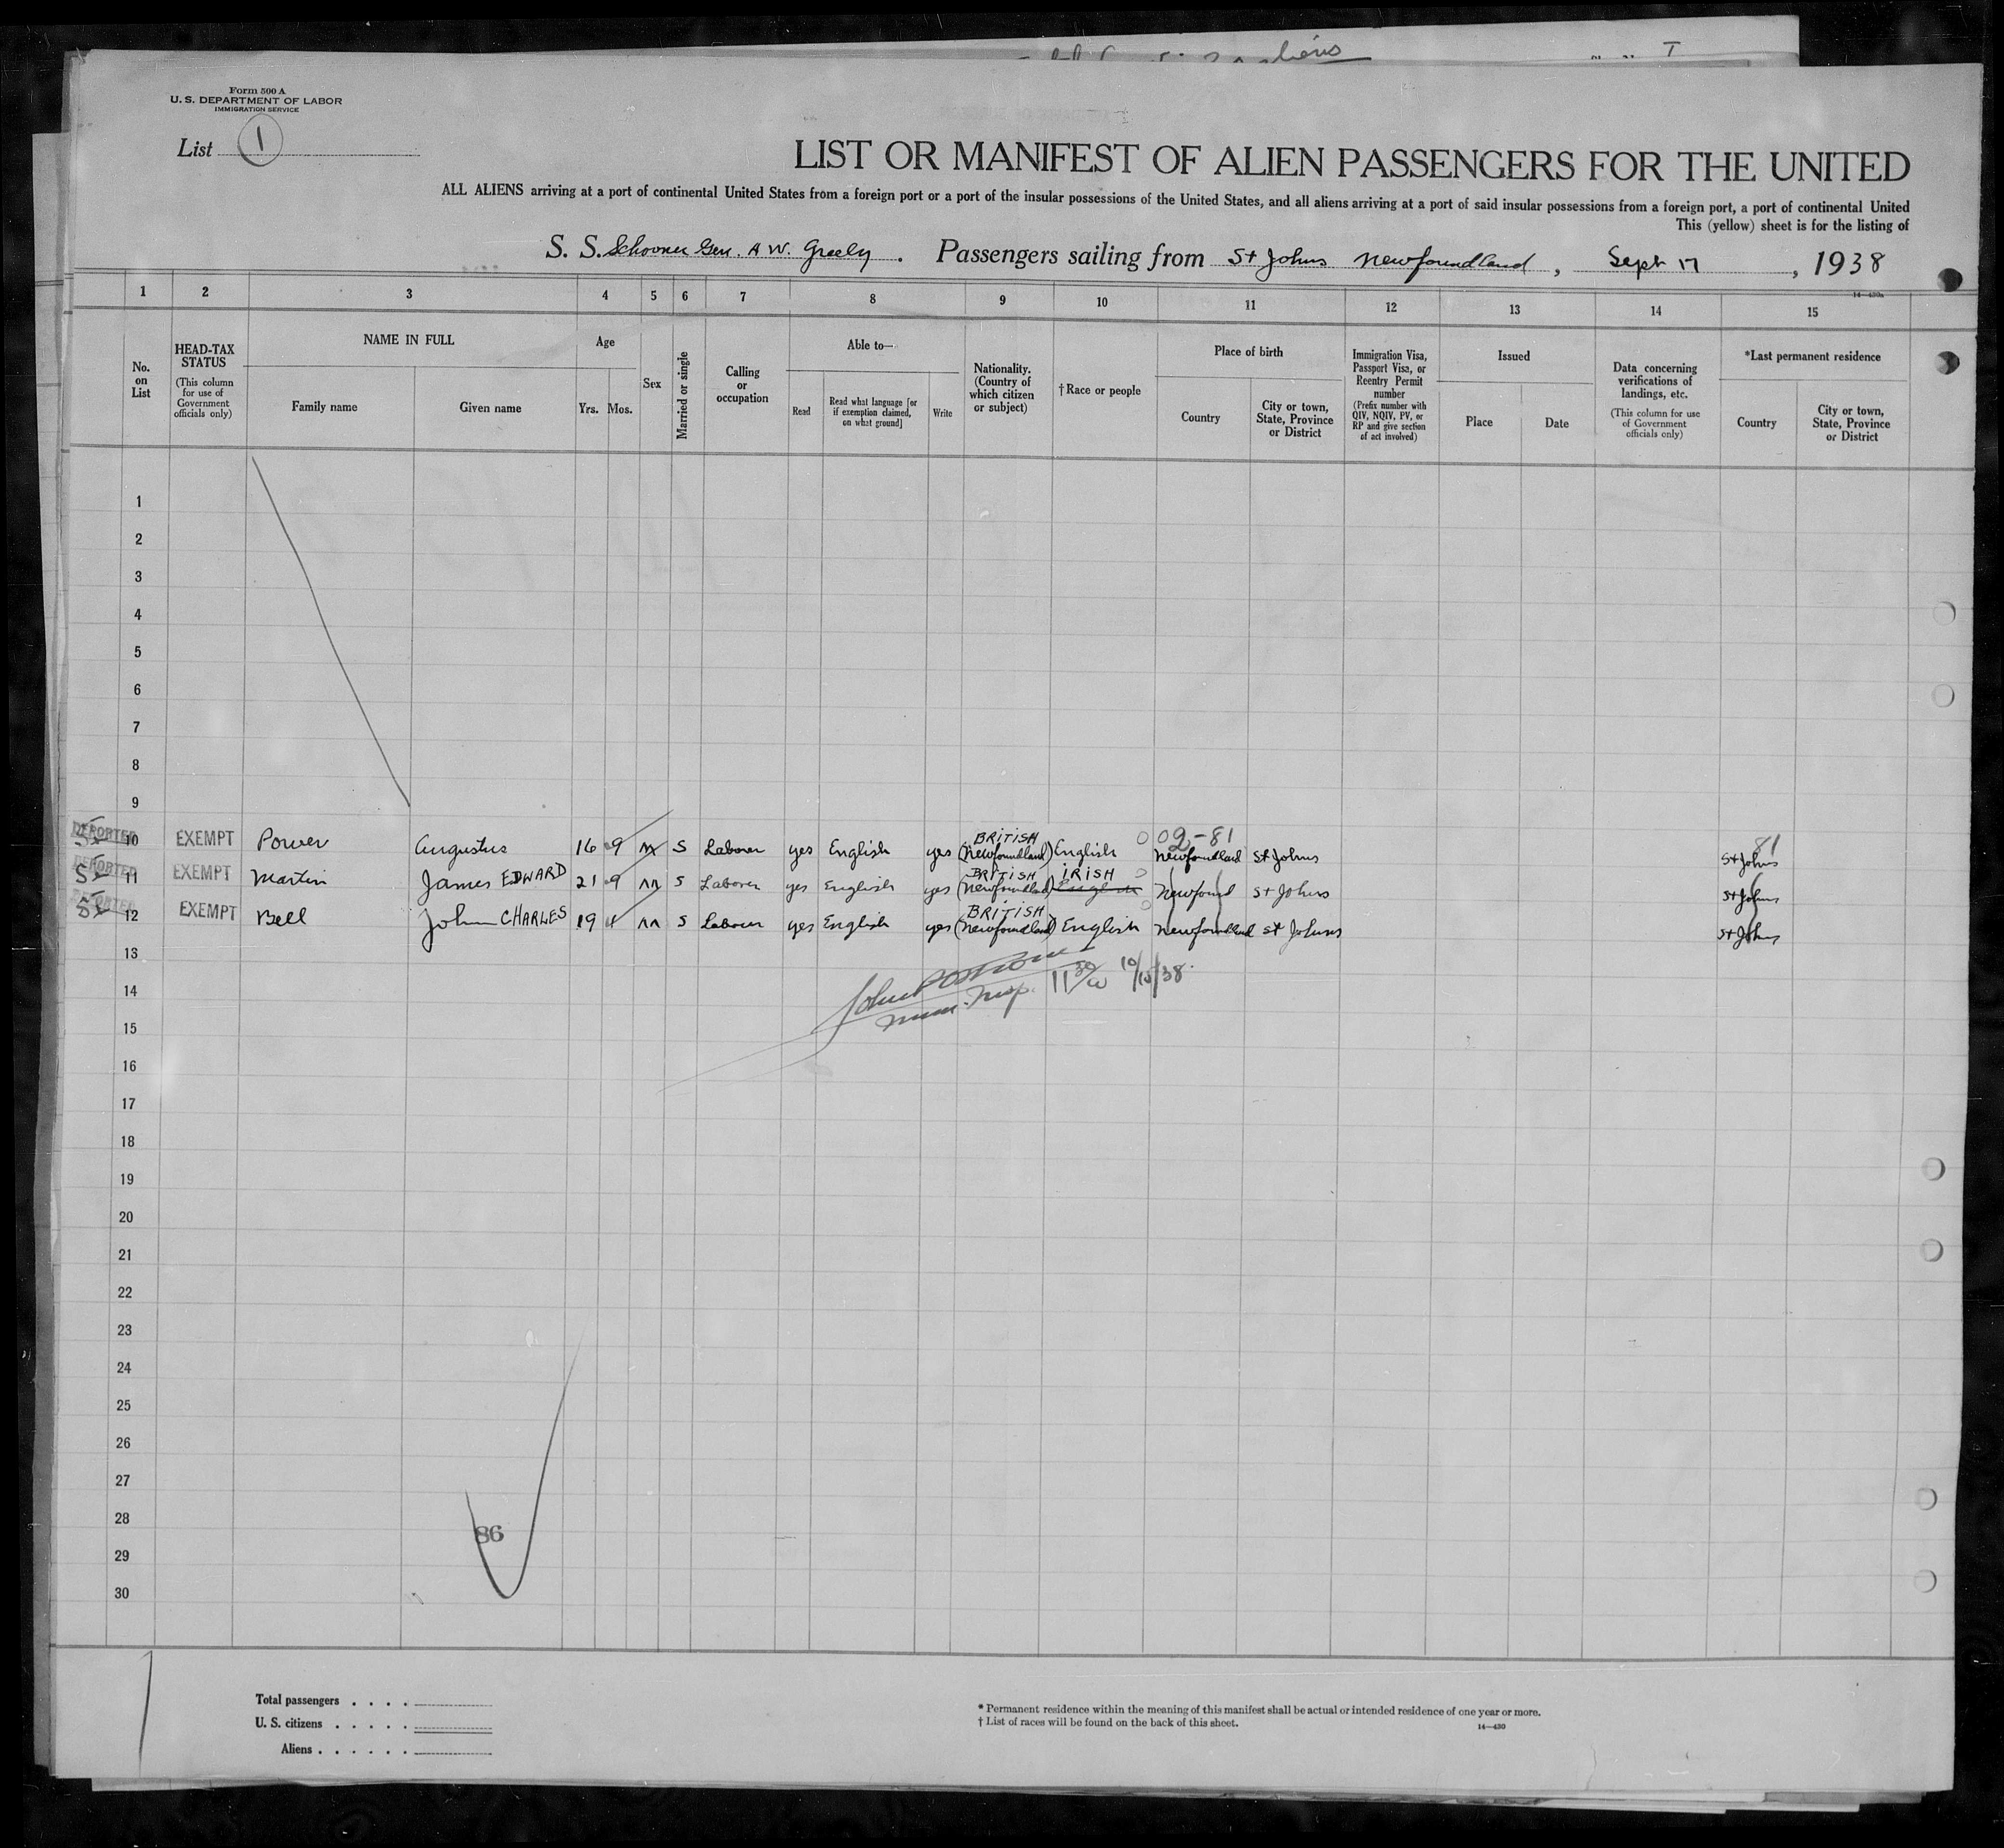 Form 500 A
U. S. DEPARTMENT OF LABOR
IMMIGRATION SERVICE
List 1
LIST OR MANIFEST OF ALIEN PASSENGERS FOR THE UNITED
ALL ALIENS arriving at a port of continental United States from a foreign port or a port of the insular possessions of the United States, and all aliens arriving at a port of said insular possessions from a foreign port, a port of continental United
This (yellow) sheet is for the listing of
S. S. Schooner Gen. A W. Greely. Passengers sailing from St Johns Newfoundland, Sept 17, 1938
1 2 3 4 5 6 7 8 9 10 11 12 13 14 15
No. on List
HEAD-TAX STATUS (This column for use of Government officials only)
NAME IN FULL
Family name
Given name
Age
Yrs. Mos.
Sex
Married or single
Calling or occupation
Able to—
Read
Read what language [or if exemption claimed, on what ground]
Write
Nationality. (Country of which citizen or subject)
†Race or people
Place of birth
Country
City or town, State, Province or District
Immigration Visa, Passport Visa, or Reentry Permit number (Prefix number with QIV, NQIV, PV, or RP and give section of act involved)
Issued
Place
Date
Data concerning verifications of landings, etc. (This column for use of Government officials only)
*Last permanent residence
Country
City or town, State, Province or District
1
2
3
4
5
6
7
8
9
DEPORTED 10 EXEMPT Power Augustus 16 9 M S Laborer yes English yes BRITISH (Newfoundland) English 02-81 Newfoundland St Johns St Johns 81
DEPORTED 11 EXEMPT Martin James EDWARD 21 9 M S Laborer yes English yes BRITISH (Newfoundland) IRISH English Newfound St Johns St Johns
DEPORTED 12 EXEMPT Bell John CHARLES 19 4 M S Labourer yes English yes BRITISH (Newfoundland) English Newfoundland St Johns St Johns
13
14 Insp. 11 30 10/10/38
15
16
17
18
19
20
21
22
23
24
25
26
27
28
86
29
30
Total passengers . . . .
U. S. citizens . . . . .
Aliens . . . . . .
* Permanent residence within the meaning of this manifest shall be actual or intended residence of one year or more.
† List of races will be found on the back of this sheet.
14—430